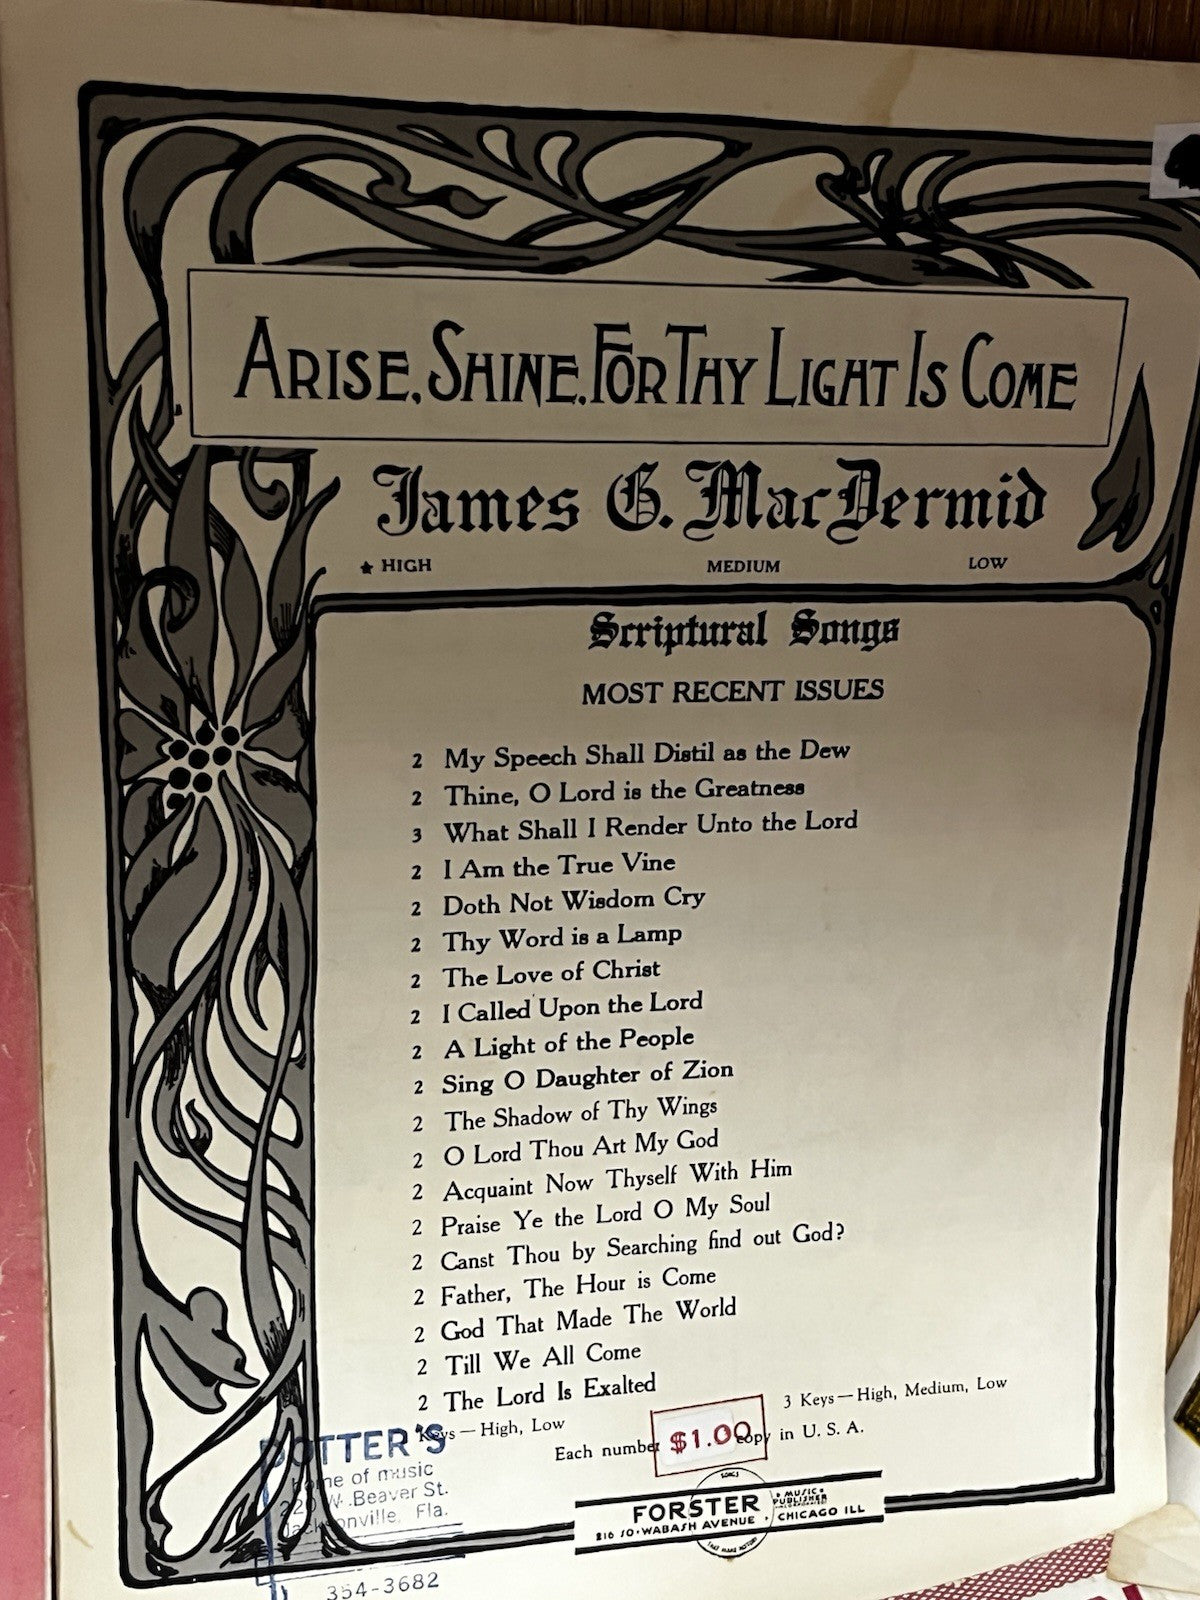 ARISE, SHINE, FOR THY LIGHT IS COME
James G. MacDermid
★ HIGH MEDIUM LOW
Scriptural Songs
MOST RECENT ISSUES
2 My Speech Shall Distil as the Dew
2 Thine, O Lord is the Greatness
3 What Shall I Render Unto the Lord
2 I Am the True Vine
2 Doth Not Wisdom Cry
2 Thy Word is a Lamp
2 The Love of Christ
2 I Called Upon the Lord
2 A Light of the People
2 Sing O Daughter of Zion
2 The Shadow of Thy Wings
2 O Lord Thou Art My God
2 Acquaint Now Thyself With Him
2 Praise Ye the Lord O My Soul
2 Canst Thou by Searching find out God?
2 Father, The Hour is Come
2 God That Made The World
2 Till We All Come
2 The Lord Is Exalted
Keys—High, Low 3 Keys—High, Medium, Low
Each number $1.00 copy in U. S. A.
POTTER'S
home of music
220 W. Beaver St.
Jacksonville, Fla.
354-3682
SONGS
FORSTER MUSIC PUBLISHER INCORPORATED
216 SO. WABASH AVENUE CHICAGO ILL
THAT MAKE HISTORY